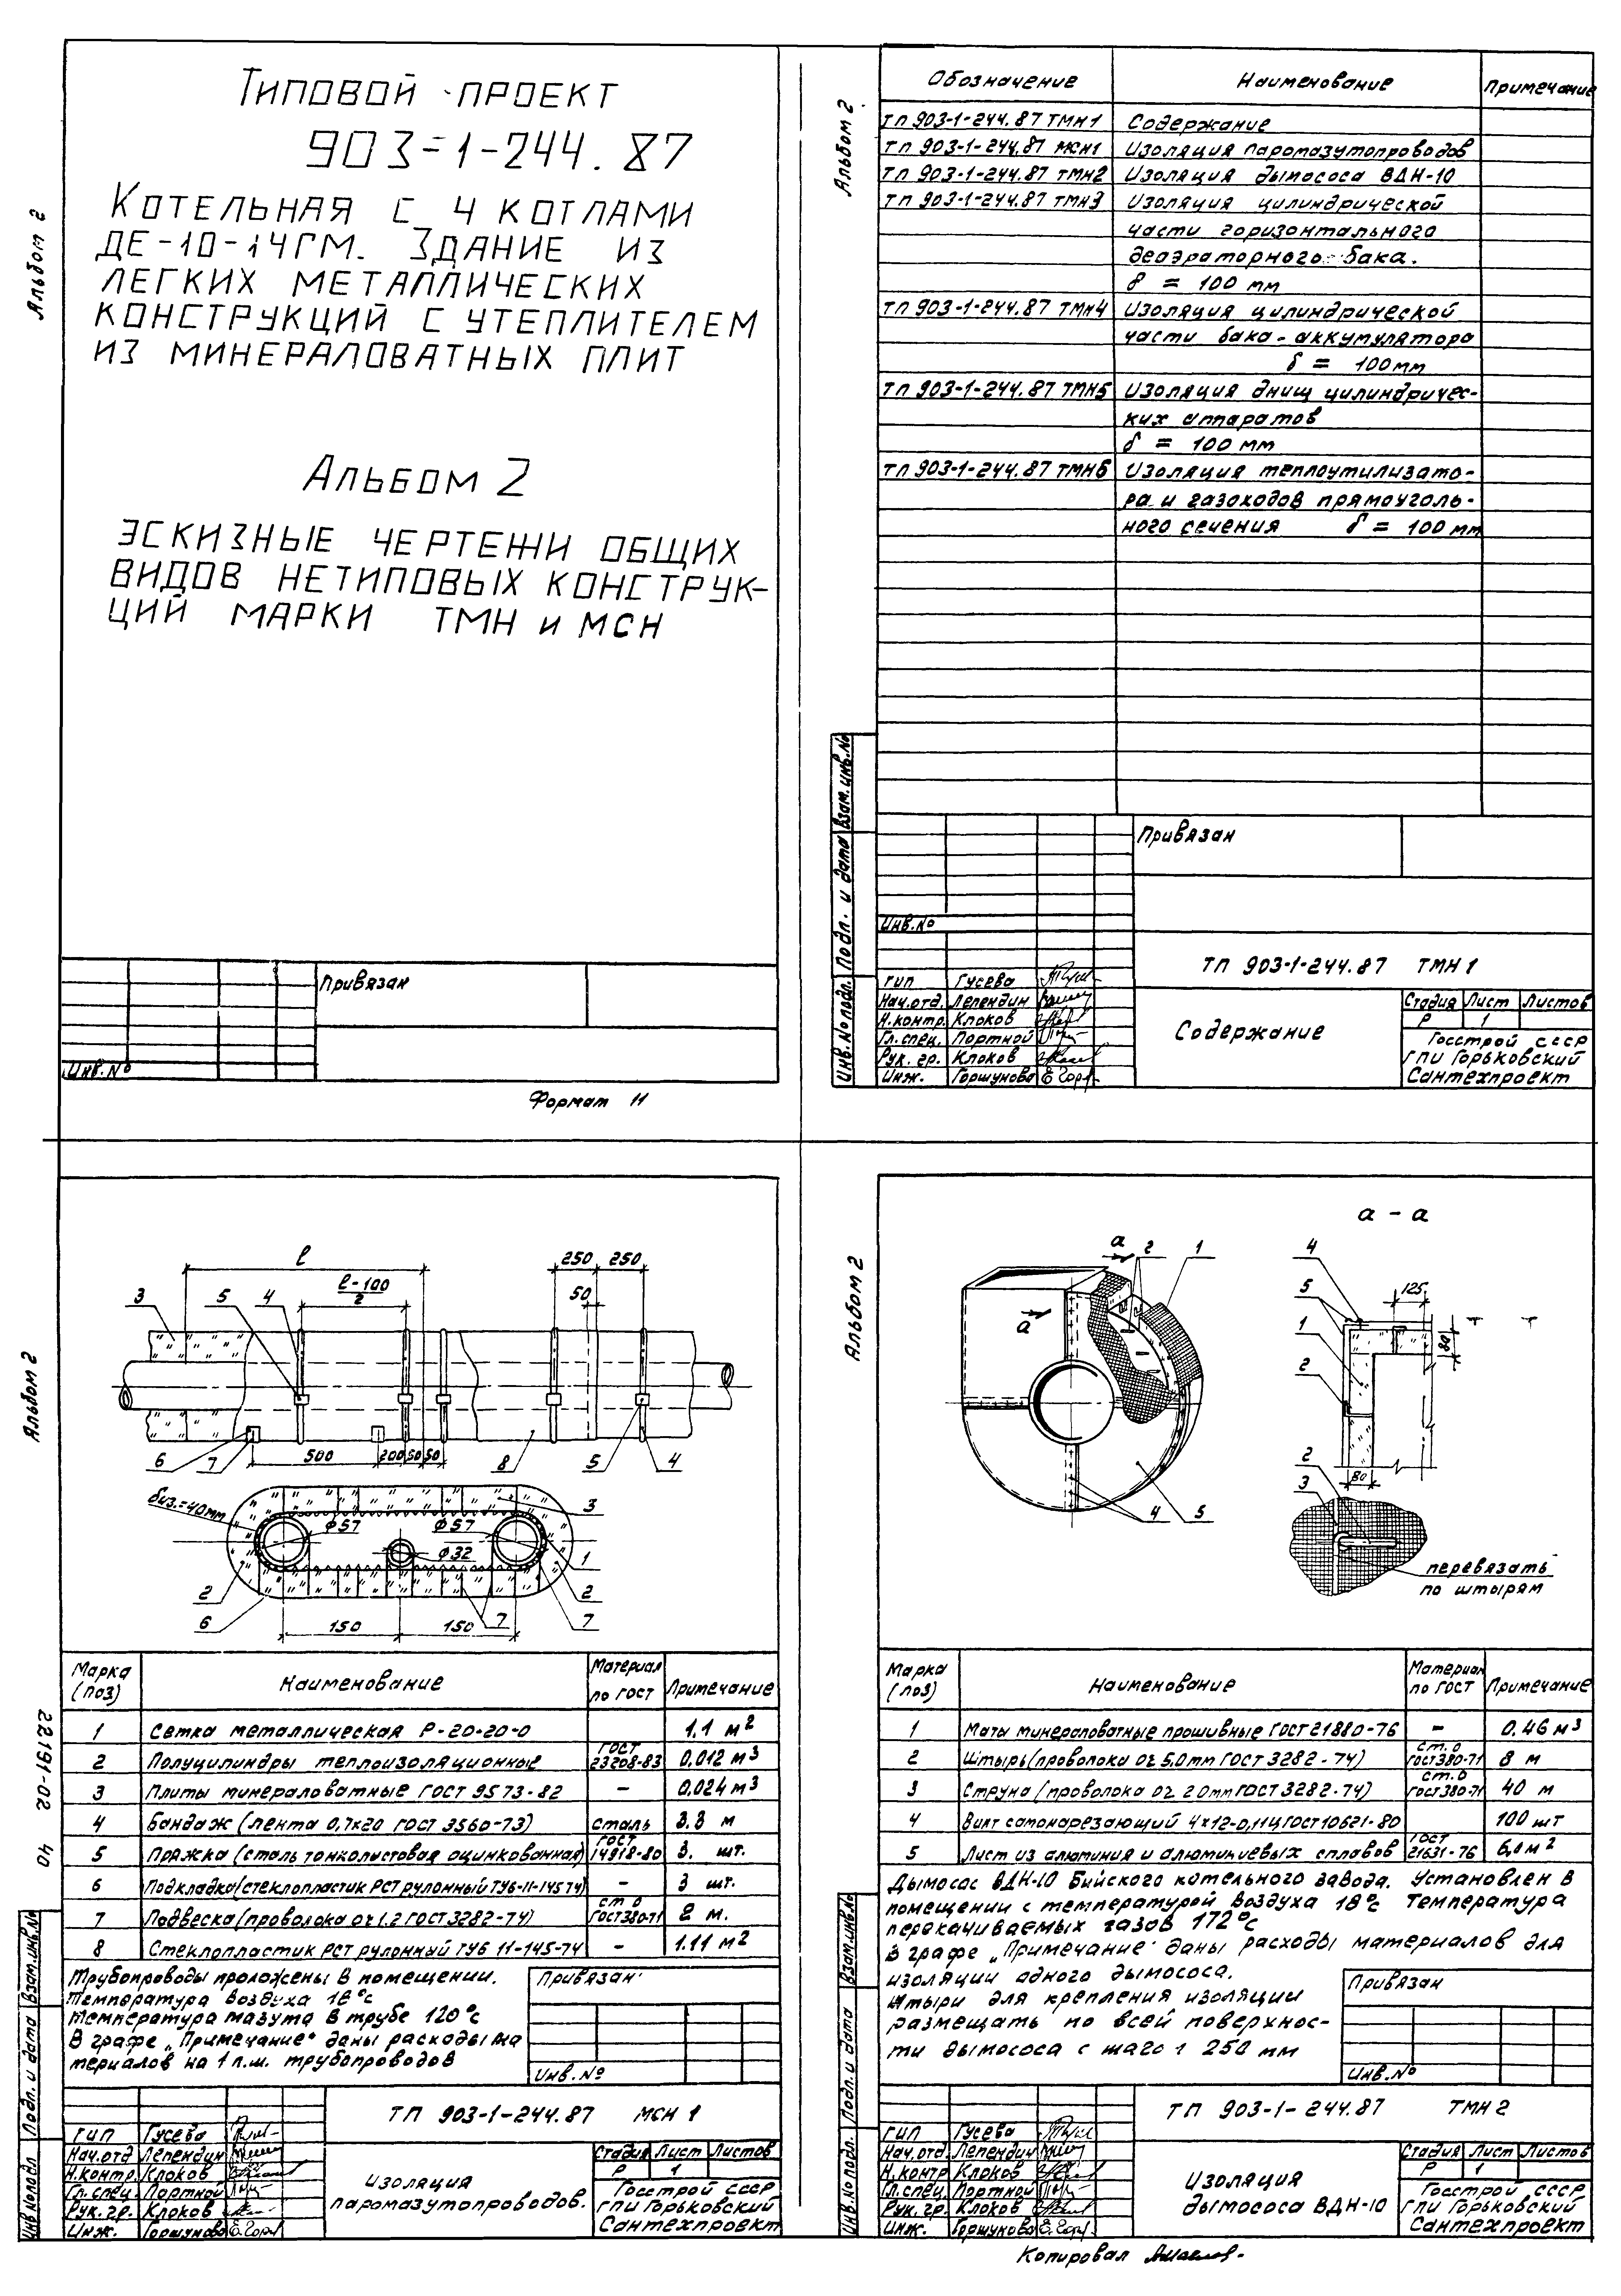 Альбом 2
Типовой проект
903-1-244.87
Котельная с 4 котлами
ДЕ-10-14ГМ. Здание из
легких металлических
конструкций с утеплителем
из минераловатных плит
Альбом 2
эскизные чертежи общих
видов нетиповых конструк-
ций марки ТМН и МСН
Привязан
Инв.№
Формат 11
Альбом 2
Обозначение Наименование Примечание
ТП 903-1-244.87 ТМН1 Содержание
ТП 903-1-244.87 МСН1 Изоляция паромазутопроводов
ТП 903-1-244.87 ТМН2 Изоляция дымососа ВДН-10
ТП 903-1-244.87 ТМН3 Изоляция цилиндрической
части горизонтального
деаэраторного бака.
δ = 100 мм
ТП 903-1-244.87 ТМН4 Изоляция цилиндрической
части бака-аккумулятора
δ = 100мм
ТП 903-1-244.87 ТМН5 Изоляция днищ цилиндричес-
ких аппаратов
δ = 100 мм
ТП 903-1-244.87 ТМН6 Изоляция теплоутилизато-
ра и газоходов прямоуголь-
ного сечения δ = 100 мм
Привязан
Инв.№
Инв.№подл. Подл. и дата Взам.инв.№
ТП 903-1-244.87 ТМН 1
ГИП Гусева
Нач.отд. Лепендин
Н.контр. Клоков
Гл.спец. Портной
Рук. гр. Клоков
Инж. Горшунова
Содержание
Стадия Лист Листов
Р 1
Госстрой СССР
ГПИ Горьковский
Сантехпроект
Альбом 2
22191-02 40
ℓ
250 250
ℓ-100
2
50
3 5 4
6 7 500 200 50 50 8 5 4
δиз.=40мм
ϕ57 ϕ57 3
ϕ32 1
2 2
6 7 7
150 150
Марка (поз) Наименование Материал по ГОСТ Примечание
1 Сетка металлическая Р-20-20-0 1.1 м²
2 Полуцилиндры теплоизоляционные ГОСТ 23208-83 0.012 м³
3 Плиты минераловатные ГОСТ 9573-82 – 0.024 м³
4 Бандаж (лента 0,7х20 ГОСТ 3560-73) сталь 3.3 м
5 Пряжка (сталь тонколистовая оцинкованная) ГОСТ 14918-80 3. шт.
6 Подкладка (стеклопластик РСТ рулонный ТУ6-11-145 74) – 3 шт.
7 Подвеска (проволока ОЧ 1.2 ГОСТ 3282-74) ст 0 ГОСТ380-71 2 м.
8 Стеклопластик РСТ рулонный ТУ6 11-145-74 – 1.11 м²
Трубопроводы проложены в помещении.
Температура воздуха 18°с
Температура мазута в трубе 120°с
В графе „Примечание" даны расходы ма
териалов на 1 п.м. трубопроводов
Привязан
Инв.№
Инв.№подл Подл. и дата Взам.инв.№
ТП 903-1-244.87 МСН 1
ГИП Гусева
Нач.отд Лепендин
Н.контр Клоков
Гл.спец. Портной
Рук. гр. Клоков
Инж. Горшунова
Изоляция
паромазутопроводов.
Стадия Лист Листов
Р 1
Госстрой СССР
ГПИ Горьковский
Сантехпроект
Альбом 2
а - а
а 2 1
а
4 5
4
5 125
1 80
2
80
2
3
перевязать
по штырям
Марка (поз) Наименование Материал по ГОСТ Примечание
1 Маты минераловатные прошивные ГОСТ 21880-76 – 0.46 м³
2 Штырь (проволока ОЧ 5.0мм ГОСТ 3282-74) ст. 0 ГОСТ380-71 8 м
3 Струна (проволока ОЧ 2 0мм ГОСТ 3282-74) ст. 0 ГОСТ380-71 40 м
4 Винт самонарезающий 4х12-0,11Ц ГОСТ 10621-80 100 шт
5 Лист из алюминия и алюминиевых сплавов ГОСТ 21631-76 6,0 м²
Дымосос ВДН-10 Бийского котельного завода. Установлен в
помещении с температурой воздуха 18°с Температура
перекачиваемых газов 172°с
В графе „Примечание" даны расходы материалов для
изоляции одного дымососа.
Штыри для крепления изоляции
размещать по всей поверхнос-
ти дымососа с шагом 250 мм
Привязан
Инв.№
Инв.№ подл. Подл. и дата Взам.инв.№
ТП 903-1-244.87 ТМН 2
ГИП Гусева
Нач.отд. Лепендин
Н.контр Клоков
Гл.спец. Портной
Рук. гр. Клоков
Инж. Горшунова
Изоляция
дымососа ВДН-10
Стадия Лист Листов
Р 1
Госстрой СССР
ГПИ Горьковский
Сантехпроект
Копировал